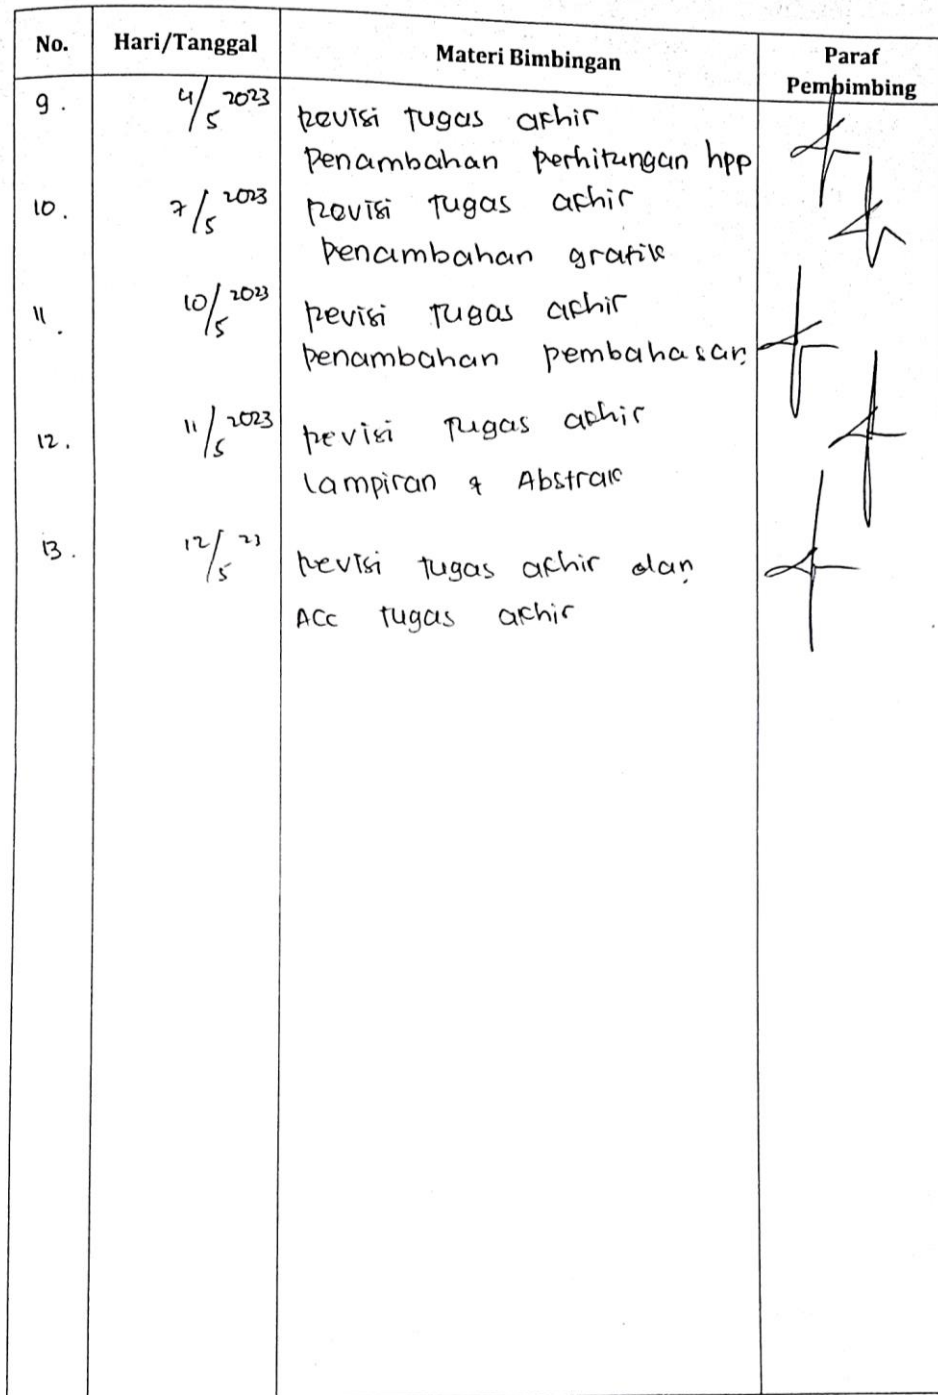 No. Hari/Tanggal Materi Bimbingan Paraf Pembimbing
9. 4/5 2023 Revisi tugas akhir
Penambahan perhitungan hpp
10. 7/5 2023 Revisi tugas akhir
Penambahan grafik
11. 10/5 2023 Revisi tugas akhir
Penambahan pembahasan
12. 11/5 2023 Revisi tugas akhir
Lampiran & Abstrak
13. 12/5 23 Revisi tugas akhir dan
ACC tugas akhir